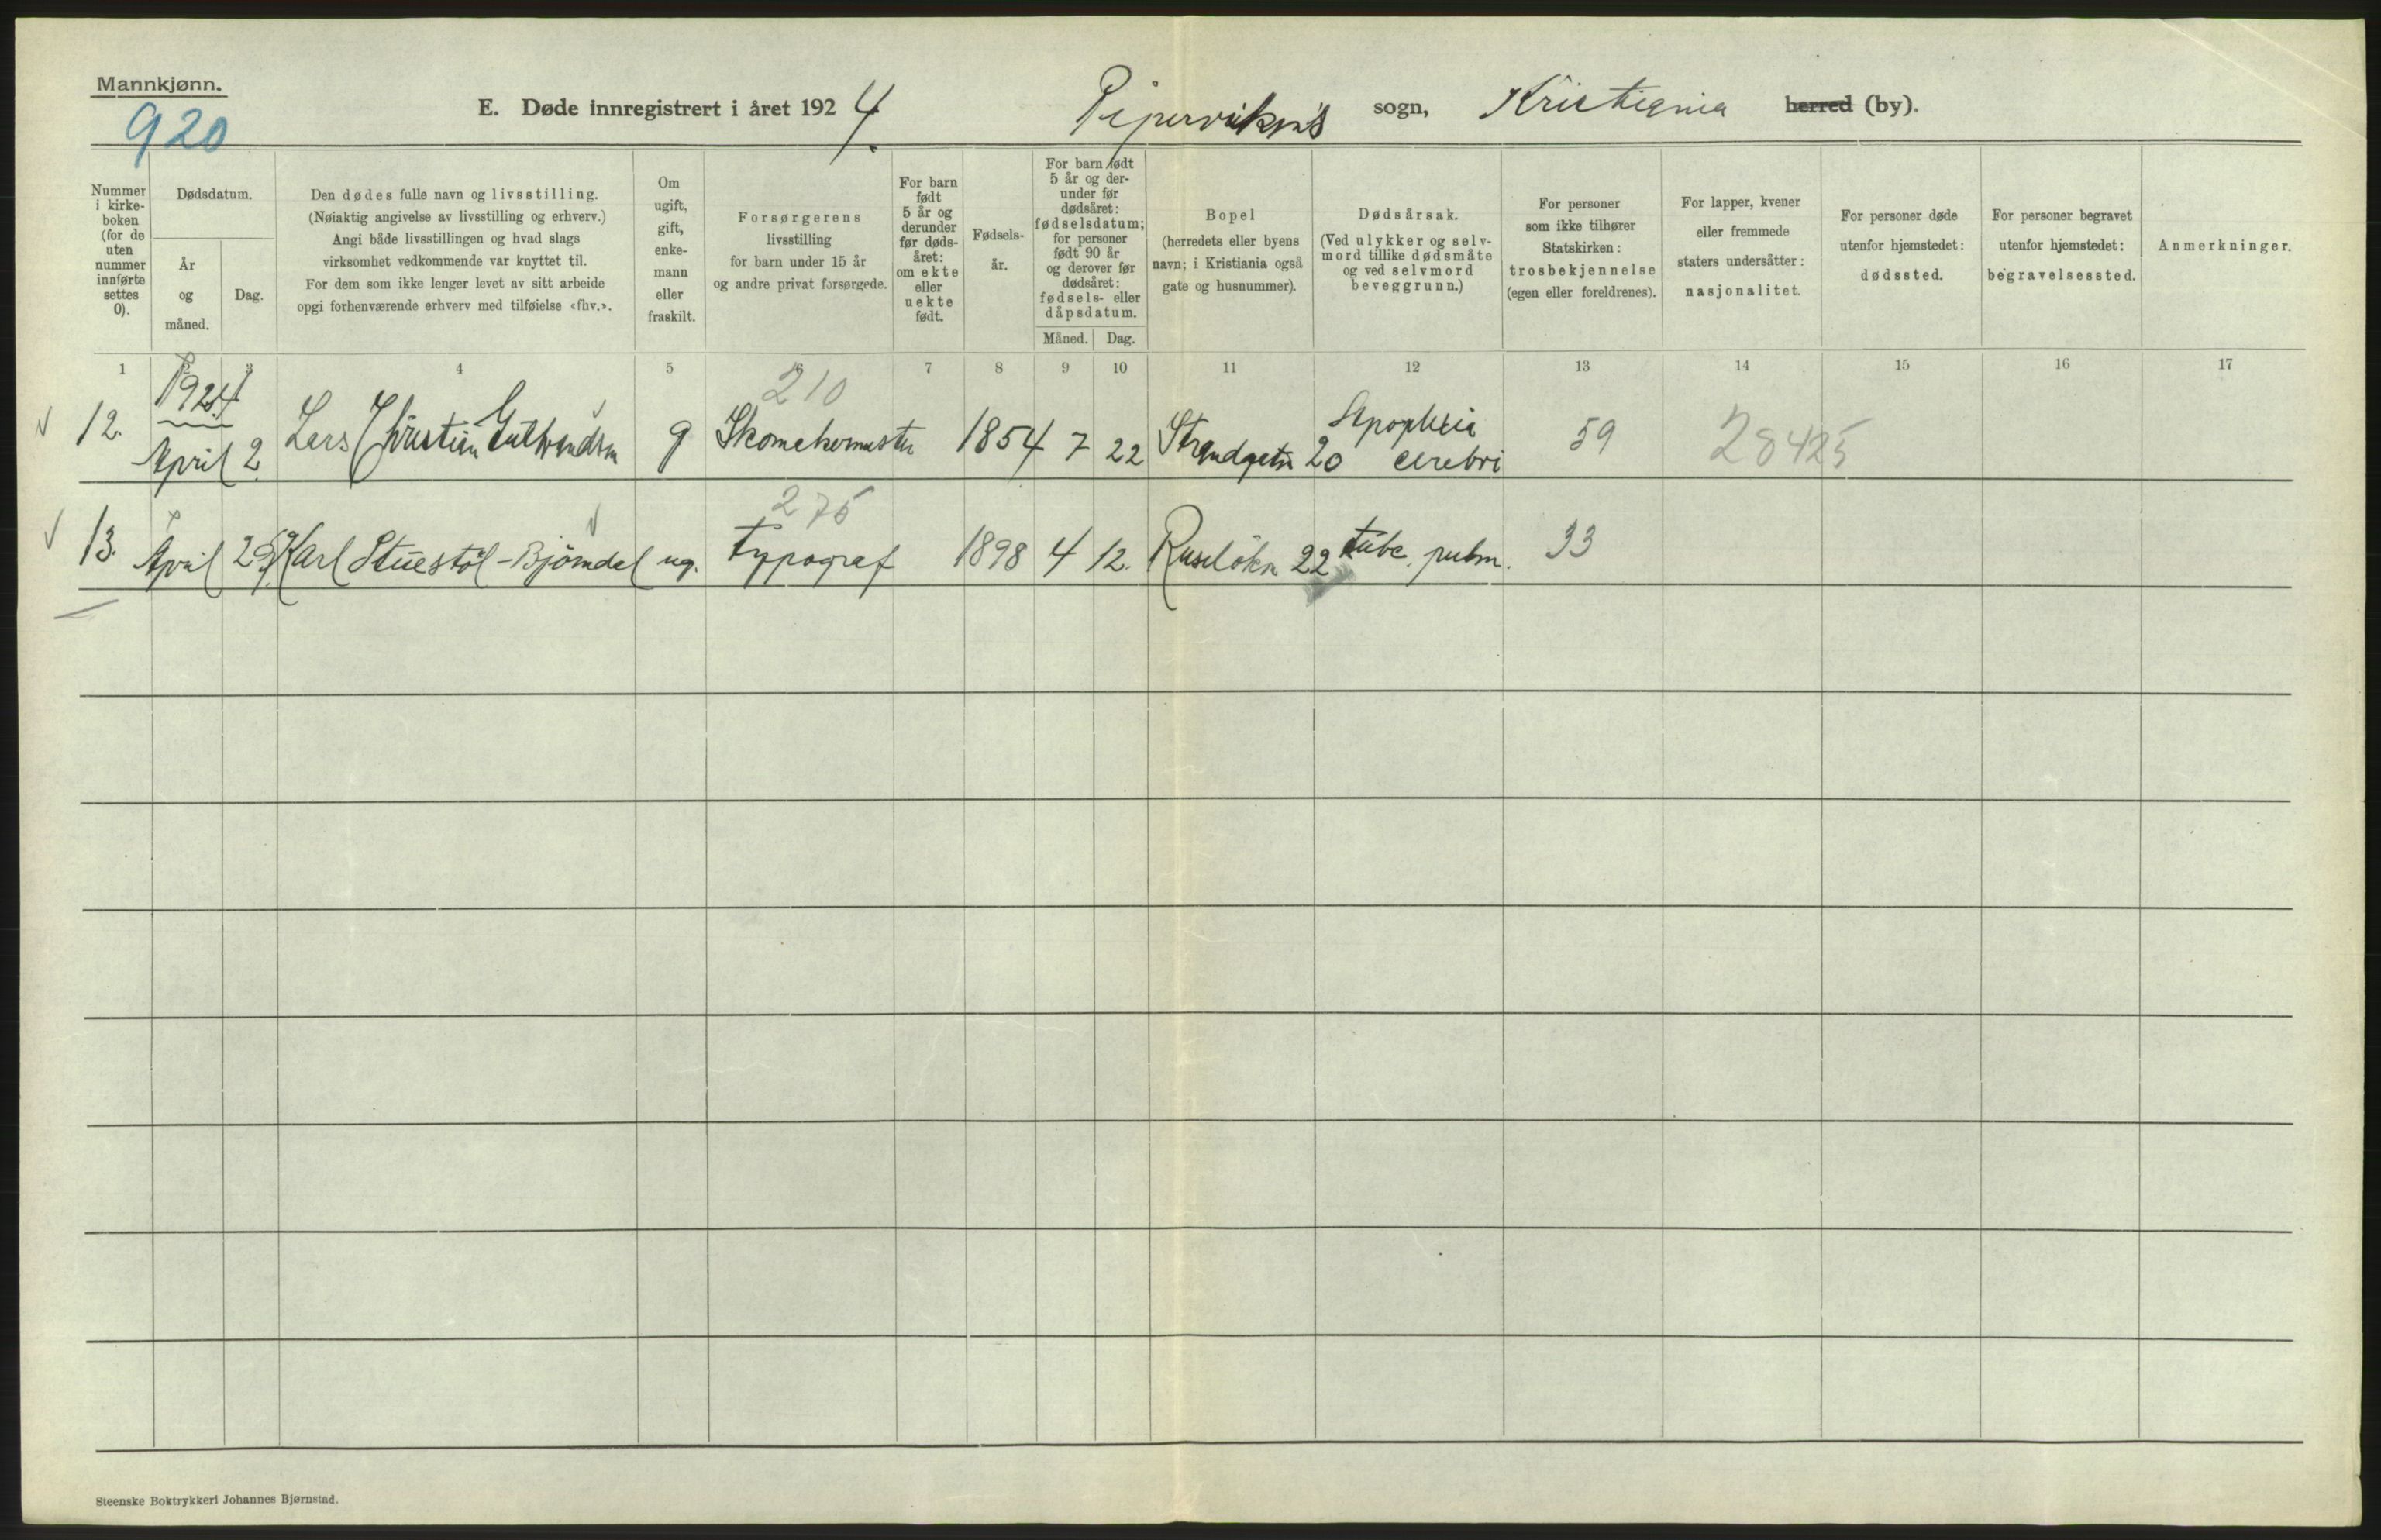 Mannkjønn.
920
E. Døde innregistrert i året 1924.
Pipervikens sogn, Kristiania herred (by).
Nummer i kirke-boken (for de uten nummer innførte settes 0).
Dødsdatum.
År og måned.
Dag.
Den dødes fulle navn og livsstilling.
(Nøiaktig angivelse av livsstilling og erhverv.)
Angi både livsstillingen og hvad slags
virksomhet vedkommende var knyttet til.
For dem som ikke lenger levet av sitt arbeide
opgi forhenværende erhverv med tilføielse «fhv.».
Om ugift, gift, enke-mann eller fraskilt.
Forsørgerens
livsstilling
for barn under 15 år
og andre privat forsørgede.
For barn født 5 år og derunder før døds-året: om ekte eller uekte født.
Fødsels-år.
For barn født 5 år og der-under før dødsåret: fødselsdatum; for personer født 90 år og derover før dødsåret: fødsels- eller dåpsdatum.
Måned. Dag.
Bopel
(herredets eller byens
navn; i Kristiania også
gate og husnummer).
Dødsårsak.
(Ved ulykker og selv-
mord tillike dødsmåte
og ved selvmord
beveggrunn.)
For personer
som ikke tilhører
Statskirken:
trosbekjennelse
(egen eller foreldrenes).
For lapper, kvener
eller fremmede
staters undersåtter:
nasjonalitet.
For personer døde
utenfor hjemstedet:
dødssted.
For personer begravet
utenfor hjemstedet:
begravelsessted.
Anmerkninger.
1 2 3 4 5 6 7 8 9 10 11 12 13 14 15 16 17
1924 210
12. April 2. Lars Christian g Skomakermester 1854 7 22 Strandgaten 20 Apoplexia cerebri 59 28425
275
13. April 29. Karl Stuestöl-Björndal ug. Typograf 1898 4 12. Ruselökn 22 tube. pulm. 33
Steenske Boktrykkeri Johannes Bjørnstad.